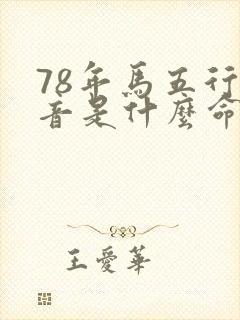 78年馬五行
音是什麼命
王愛華